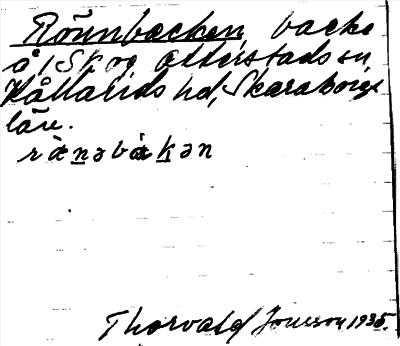 Rönnbacken, backe
å, Skog Otterstads sn,
Kållands hd, Skaraborgs
län.
rä̀nəbàkən
Thorvald Jonsson 1935.